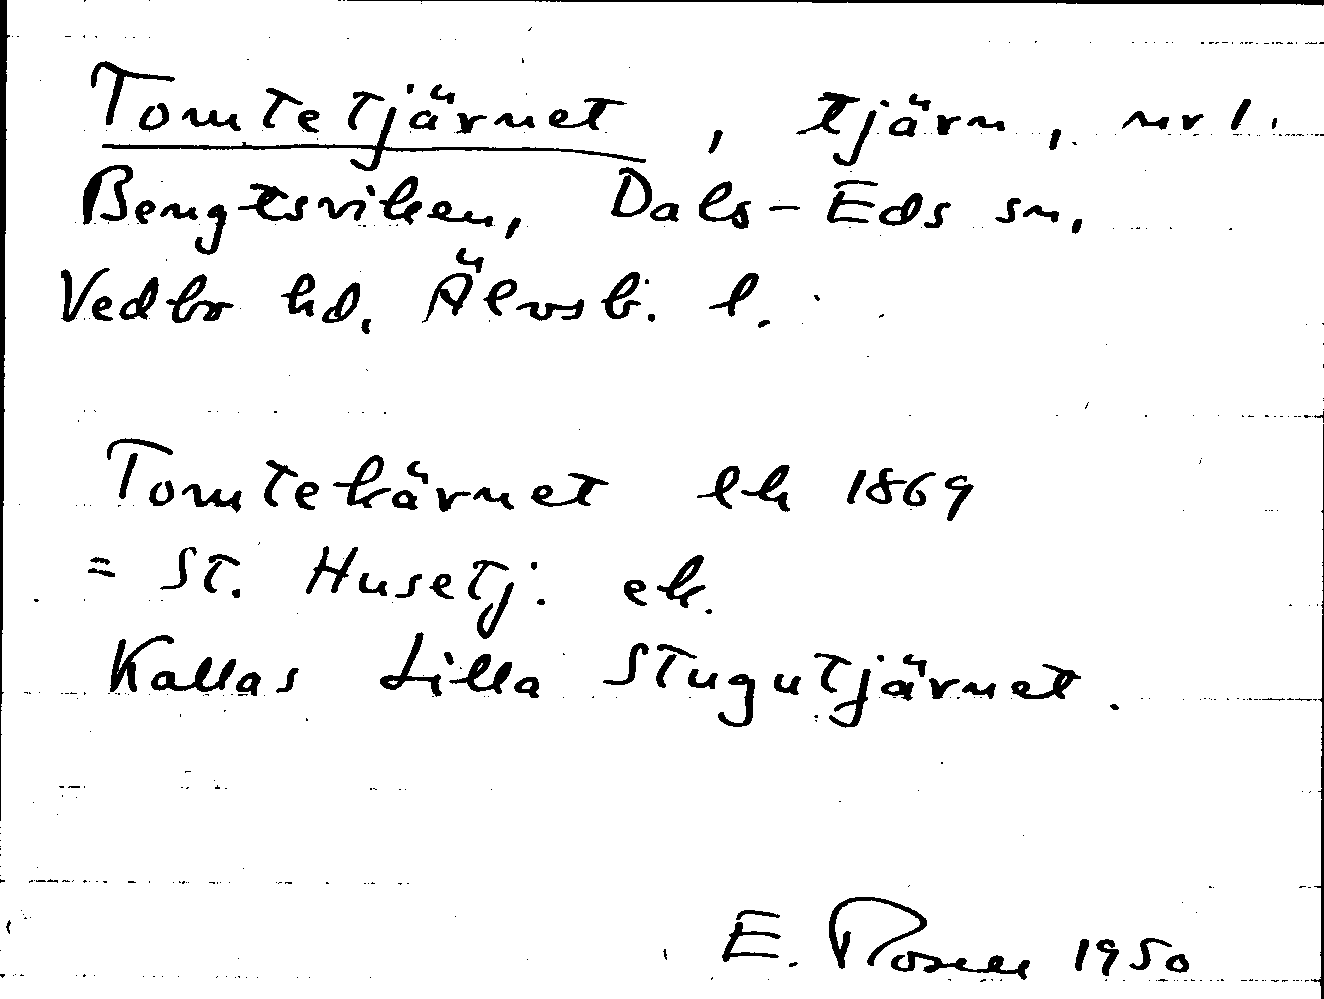 Tomtetjärnet, tjärn, nr 1.
Bengtsviken, Dals-Eds sn,
Vedbo hd, Älvsb. l.
Tomtekärnet ek 1869
= St. Husetj. ek.
Kallas Lilla Stugutjärnet.
E. Rosell 1950